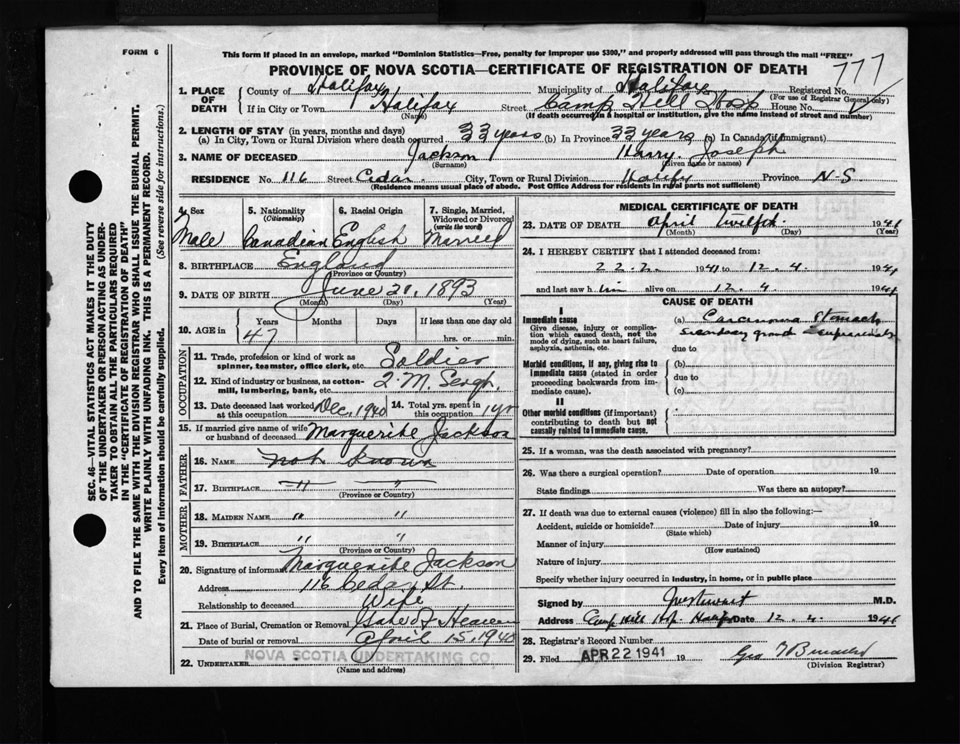 FORM 6
This form if placed in an envelope, marked "Dominion Statistics—Free, penalty for improper use $300," and properly addressed will pass through the mail "FREE"
PROVINCE OF NOVA SCOTIA—CERTIFICATE OF REGISTRATION OF DEATH
777
1. PLACE OF DEATH
County of Halifax Municipality of Halifax Registered No.
(For use of Registrar General only)
If in City or Town Halifax Street Camp Hill Hosp House No.
(Name) (If death occurred in a hospital or institution, give the name instead of street and number)
2. LENGTH OF STAY (in years, months and days)
(a) In City, Town or Rural Division where death occurred 33 years (b) In Province 33 years (c) In Canada (if immigrant)
3. NAME OF DECEASED Jackson Harry Joseph
(Surname) (Given name or names)
RESIDENCE No. 116 Street Cedar City, Town or Rural Division Province N-S
(Residence means usual place of abode. Post Office Address for residents in rural parts not sufficient)
4. Sex Male
5. Nationality (Citizenship) Canadian
6. Racial Origin English
7. Single, Married, Widowed or Divorced (write the word) Married
8. BIRTHPLACE England
(Province or Country)
9. DATE OF BIRTH June 20, 1893
(Month) (Day) (Year)
10. AGE in Years Months Days If less than one day old
47 hrs. or min.
OCCUPATION
11. Trade, profession or kind of work as spinner, teamster, office clerk, etc. Soldier
12. Kind of industry or business, as cotton-mill, lumbering, bank, etc. Q.M. Sergt
13. Date deceased last worked at this occupation Dec, 1940
14. Total yrs. spent in this occupation 1 yr
15. If married give name of wife or husband of deceased Marguerite Jackson
FATHER
16. NAME not known
17. BIRTHPLACE " "
(Province or Country)
MOTHER
18. MAIDEN NAME " "
19. BIRTHPLACE " "
(Province or Country)
20. Signature of informant Marguerite Jackson
Address 116 Cedar St.
Relationship to deceased Wife
21. Place of Burial, Cremation or Removal Gates of Heaven
Date of burial or removal April 15, 1940
22. UNDERTAKER NOVA SCOTIA UNDERTAKING CO.
(Name and address)
MEDICAL CERTIFICATE OF DEATH
23. DATE OF DEATH April twelfth 1941
(Month) (Day) (Year)
24. I HEREBY CERTIFY that I attended deceased from:
22.2. 1941 to 12.4. 1941
and last saw him alive on 12.4 1941
CAUSE OF DEATH
I
Immediate cause
Give disease, injury or complication which caused death, not the mode of dying, such as heart failure, asphyxia, asthenia, etc.
(a) Carcinoma Stomach
due to
Morbid conditions, if any, giving rise to immediate cause (stated in order proceeding backwards from immediate cause).
(b)
due to
(c)
II
Other morbid conditions (if important) contributing to death but not causally related to immediate cause.
25. If a woman, was the death associated with pregnancy?
26. Was there a surgical operation? Date of operation 19
State findings Was there an autopsy?
27. If death was due to external causes (violence) fill in also the following:—
Accident, suicide or homicide? Date of injury 19
(State which)
Manner of injury
(How sustained)
Nature of injury
Specify whether injury occurred in industry, in home, or in public place
Signed by M.D.
Address Camp Hill Hosp. Halifax Date 12.4. 1941
28. Registrar's Record Number
29. Filed APR 22 1941 19
(Division Registrar)
SEC. 46—VITAL STATISTICS ACT MAKES IT THE DUTY
OF THE UNDERTAKER OR PERSON ACTING AS UNDER-
TAKER TO OBTAIN ALL THE PARTICULARS REQUIRED
IN THE "CERTIFICATE OF REGISTRATION OF DEATH"
AND TO FILE THE SAME WITH THE DIVISION REGISTRAR WHO SHALL ISSUE THE BURIAL PERMIT.
WRITE PLAINLY WITH UNFADING INK. THIS IS A PERMANENT RECORD.
Every item of information should be carefully supplied. (See reverse side for instructions.)